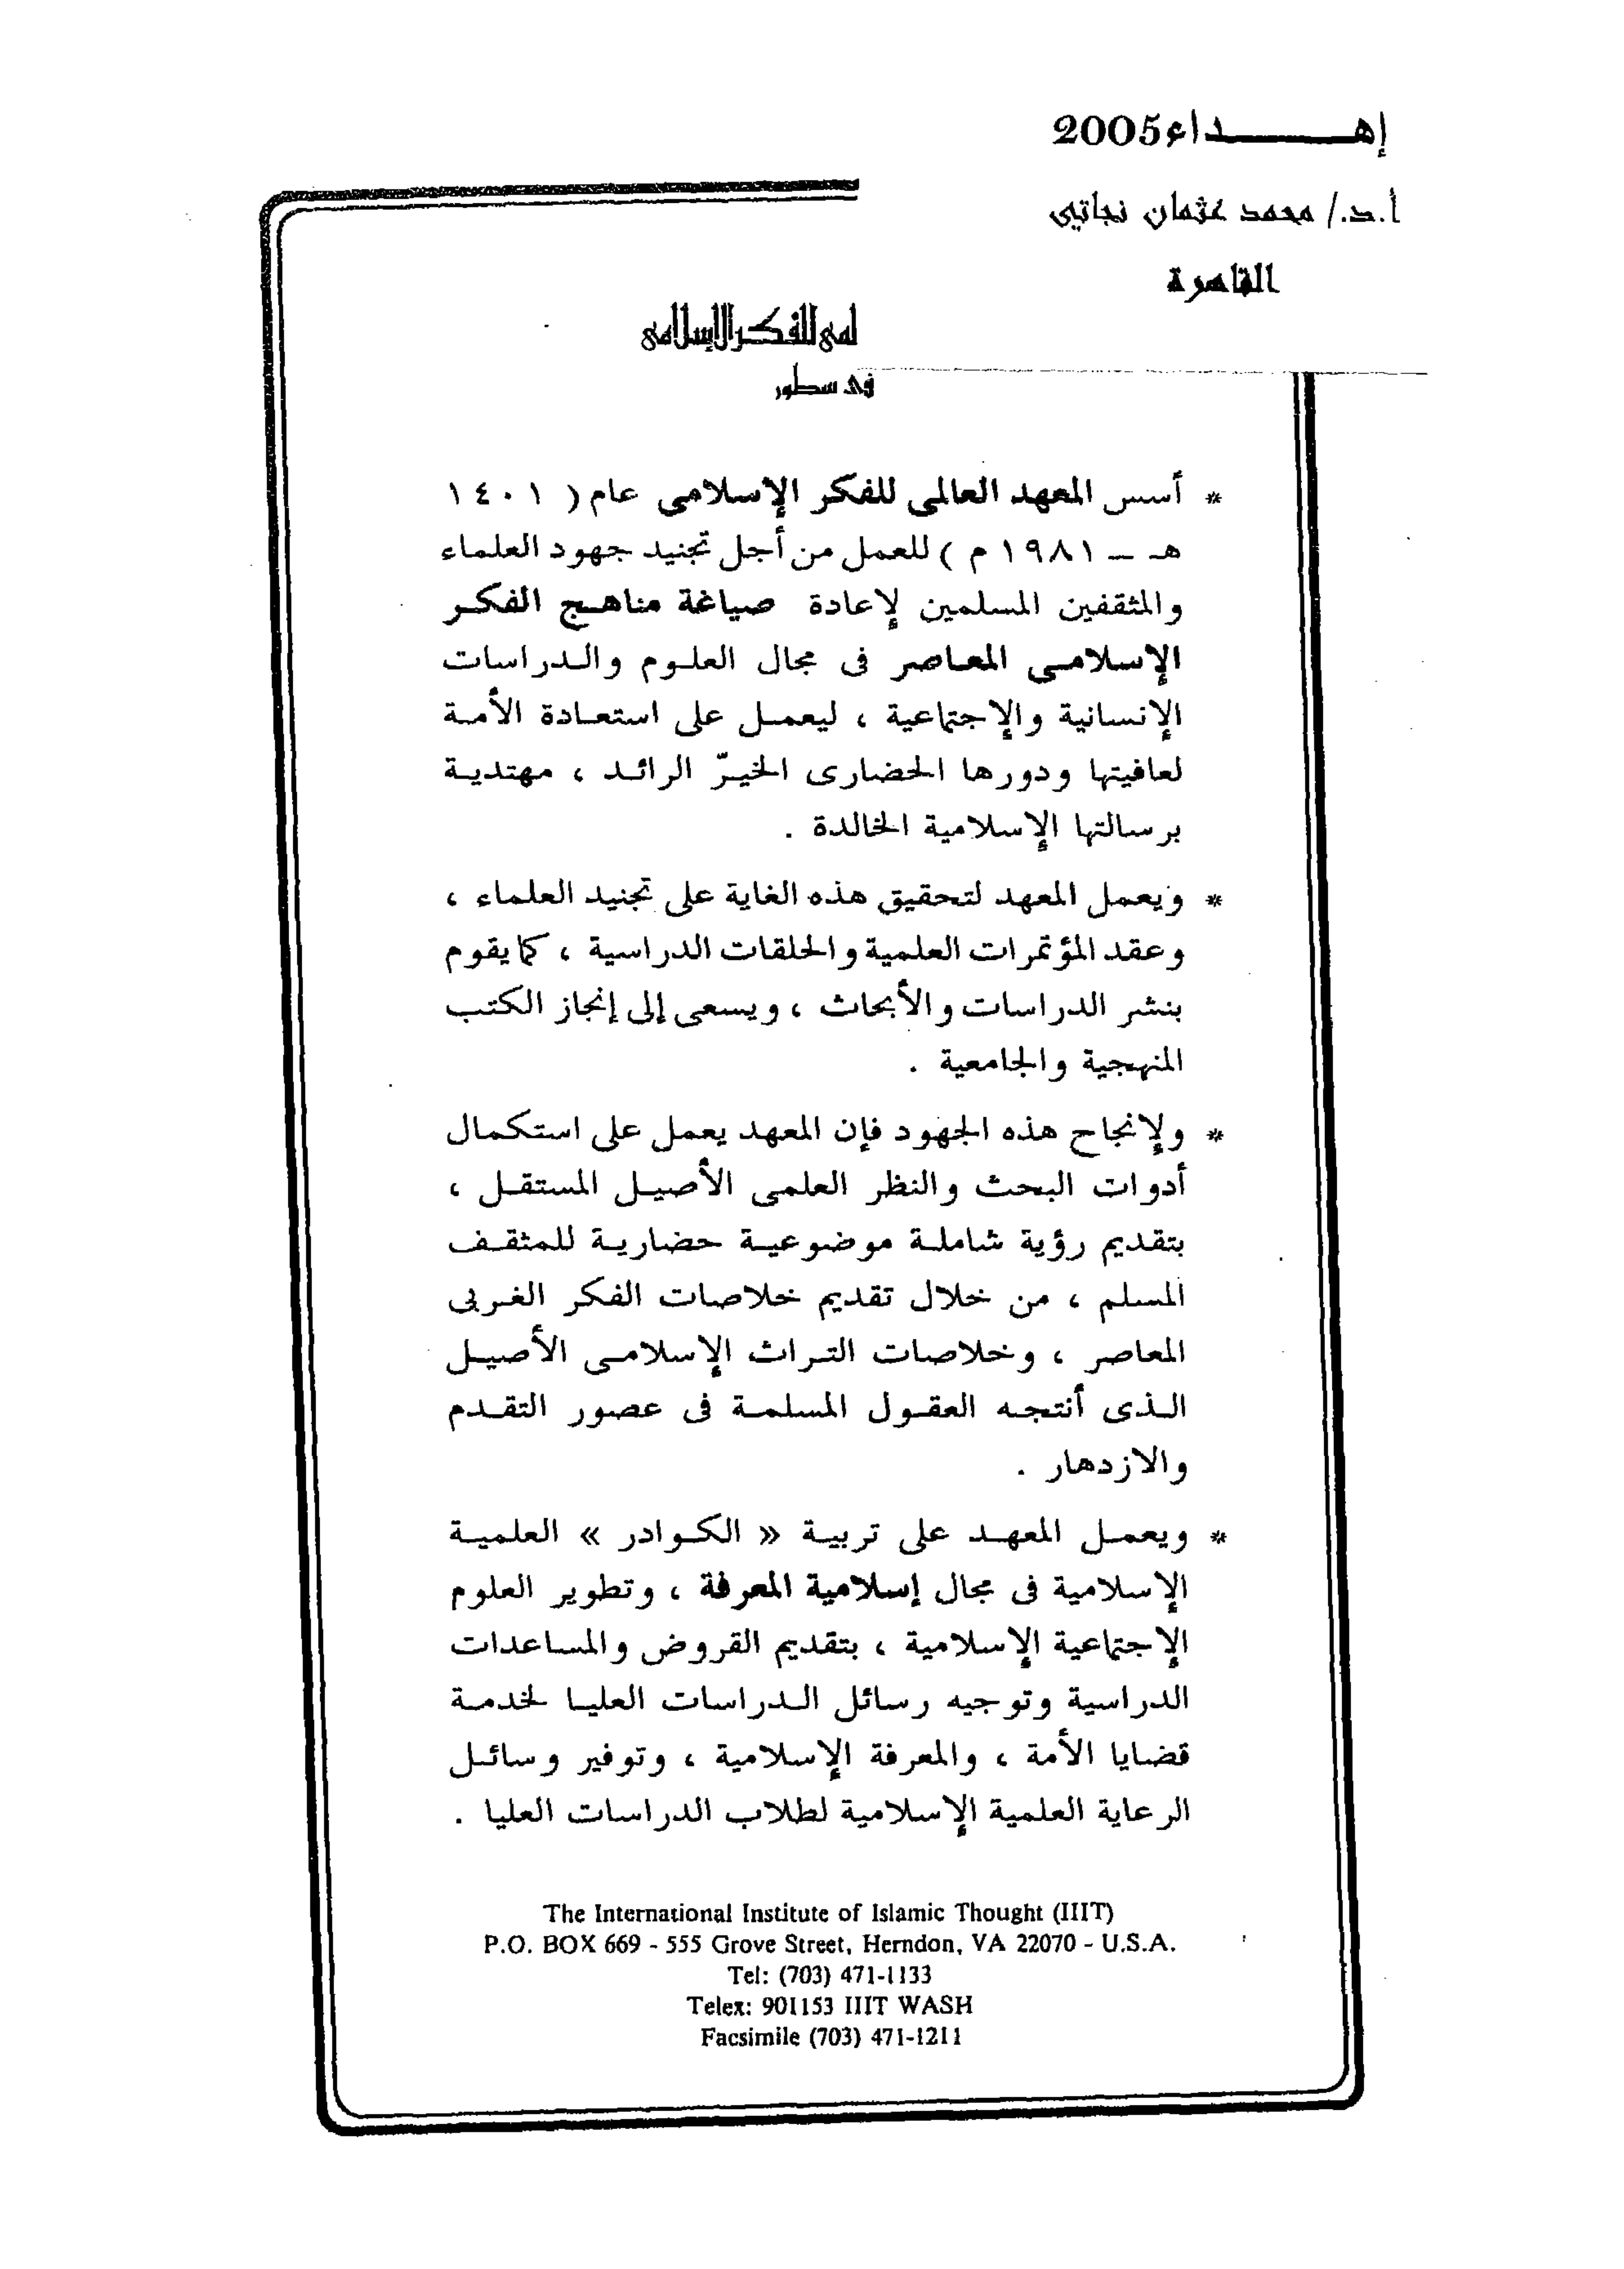 إهداء2005
أ.د./ محمد عثمان نجاتي
القاهرة
لمى للفكر الإسلامى
فى سطور
* أسس المعهد العالمى للفكر الإسلامى عام ( ١٤٠١
هـ – ١٩٨١ م ) للعمل من أجل تجنيد جهود العلماء
والمثقفين المسلمين لإعادة صياغة مناهج الفكر
الإسلامى المعاصر فى مجال العلوم والدراسات
الإنسانية والإجتماعية ، ليعمل على استعادة الأمة
لعافيتها ودورها الحضارى الخيرّ الرائد ، مهتدية
برسالتها الإسلامية الخالدة .
* ويعمل المعهد لتحقيق هذه الغاية على تجنيد العلماء ،
وعقد المؤتمرات العلمية والحلقات الدراسية ، كما يقوم
بنشر الدراسات والأبحاث ، ويسعى إلى إنجاز الكتب
المنهجية والجامعية .
* ولإنجاح هذه الجهود فإن المعهد يعمل على استكمال
أدوات البحث والنظر العلمى الأصيل المستقل ،
بتقديم رؤية شاملة موضوعية حضارية للمثقف
المسلم ، من خلال تقديم خلاصات الفكر الغربى
المعاصر ، وخلاصات التراث الإسلامى الأصيل
الذى أنتجه العقول المسلمة فى عصور التقدم
والازدهار .
* ويعمل المعهد على تربية « الكوادر » العلمية
الإسلامية فى مجال إسلامية المعرفة ، وتطوير العلوم
الإجتماعية الإسلامية ، بتقديم القروض والمساعدات
الدراسية وتوجيه رسائل الدراسات العليا لخدمة
قضايا الأمة ، والمعرفة الإسلامية ، وتوفير وسائل
الرعاية العلمية الإسلامية لطلاب الدراسات العليا .
The International Institute of Islamic Thought (IIIT)
P.O. BOX 669 - 555 Grove Street, Herndon, VA 22070 - U.S.A.
Tel: (703) 471-1133
Telex: 901153 IIIT WASH
Facsimile (703) 471-1211